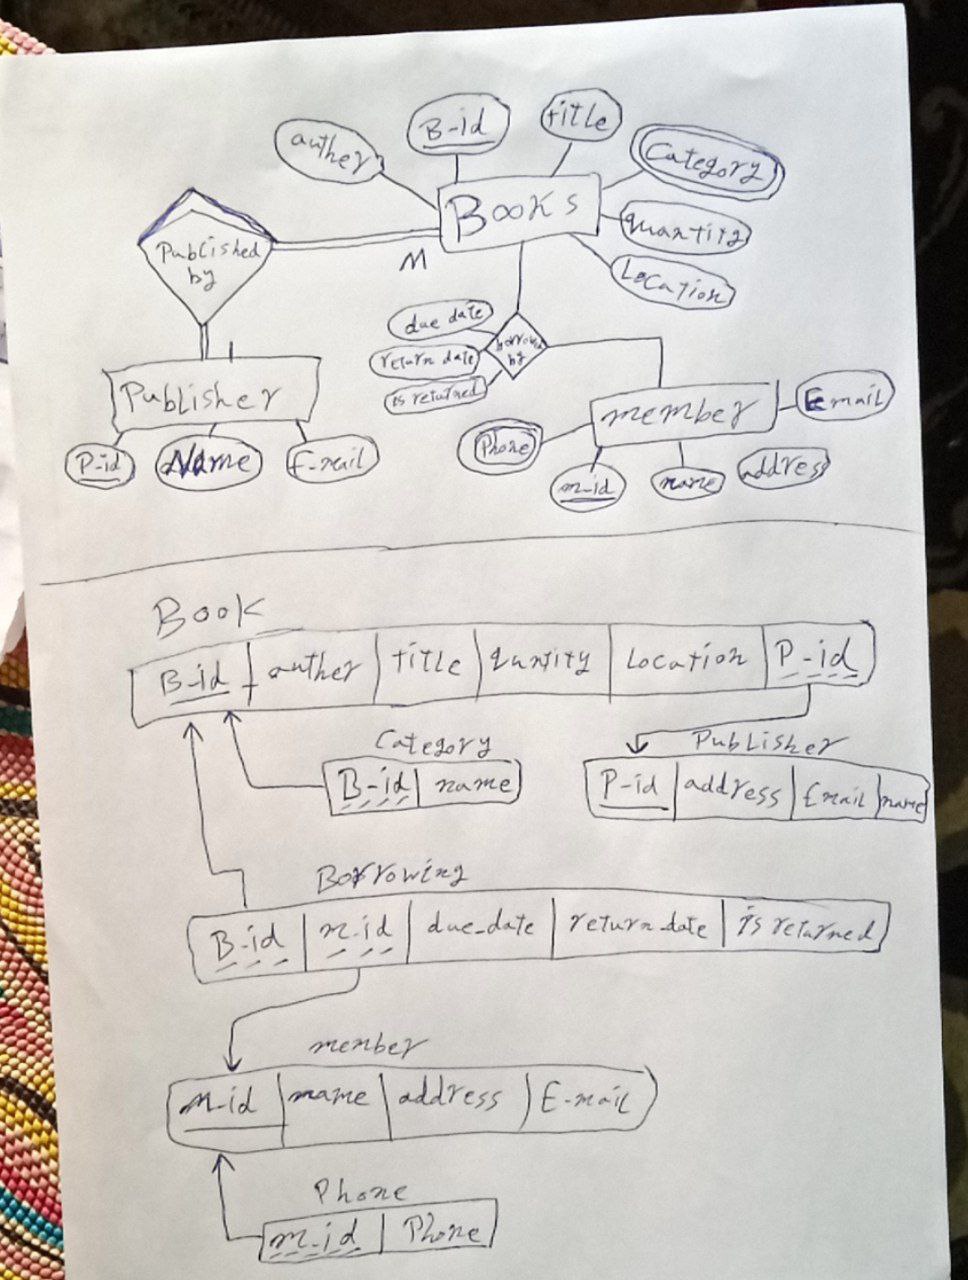 auther
B-id
title
Category
Books
quantity
Location
Published
by
M
due date
return date
is returned
borrowed
by
Publisher
P-id
Name
E-mail
member
Email
Phone
m-id
name
address
Book
B-id auther title quntity Location P-id
Category
B-id name
Publisher
P-id address Email name
Borrowing
B-id m-id due_date return_date is returned
member
m-id name address E-mail
Phone
m-id Phone